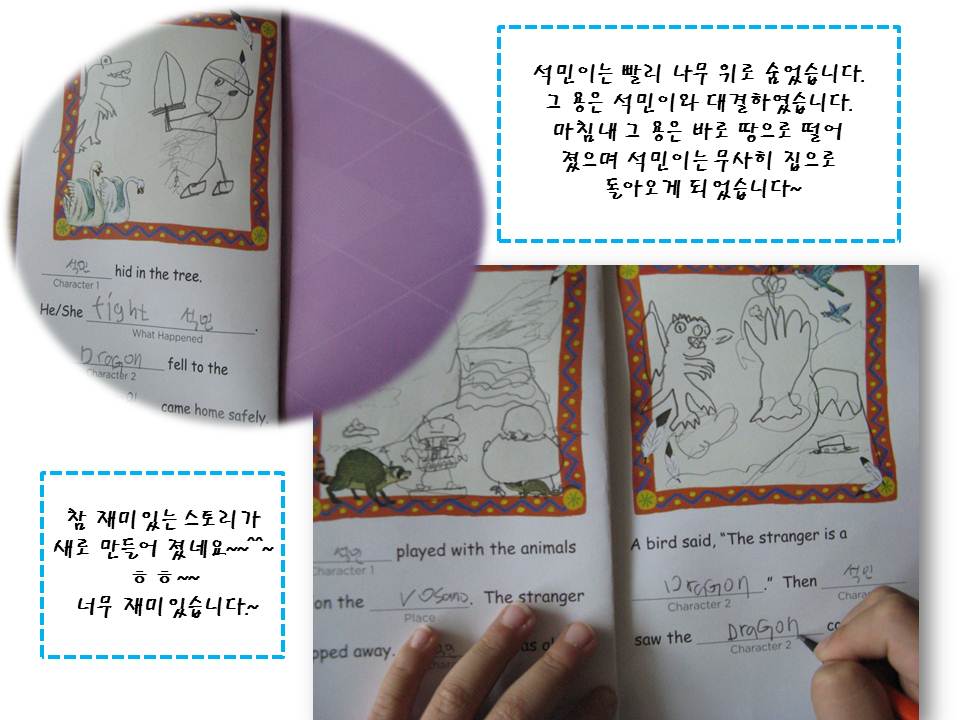 석민이는 빨리 나무 위로 숨었습니다.
그 용은 석민이와 대결하였습니다.
마침내 그 용은 바로 땅으로 떨어
졌으며 석민이는무사히 집으로
돌아오게 되었습니다~
석민 hid in the tree.
Character 1
He/She fight 석민.
What Happened
DraGon fell to the
Character 2
came home safely.
참 재미있는스토리가
새로 만들어 졌네요~~^^~
ㅎㅎ~~
너무 재미있습니다.~
석민 played with the animals
Character 1
on the vosano. The stranger
Place
pped away.
A bird said, “The stranger is a
DraGon.” Then 석민
Character 2
saw the DraGon
Character 2